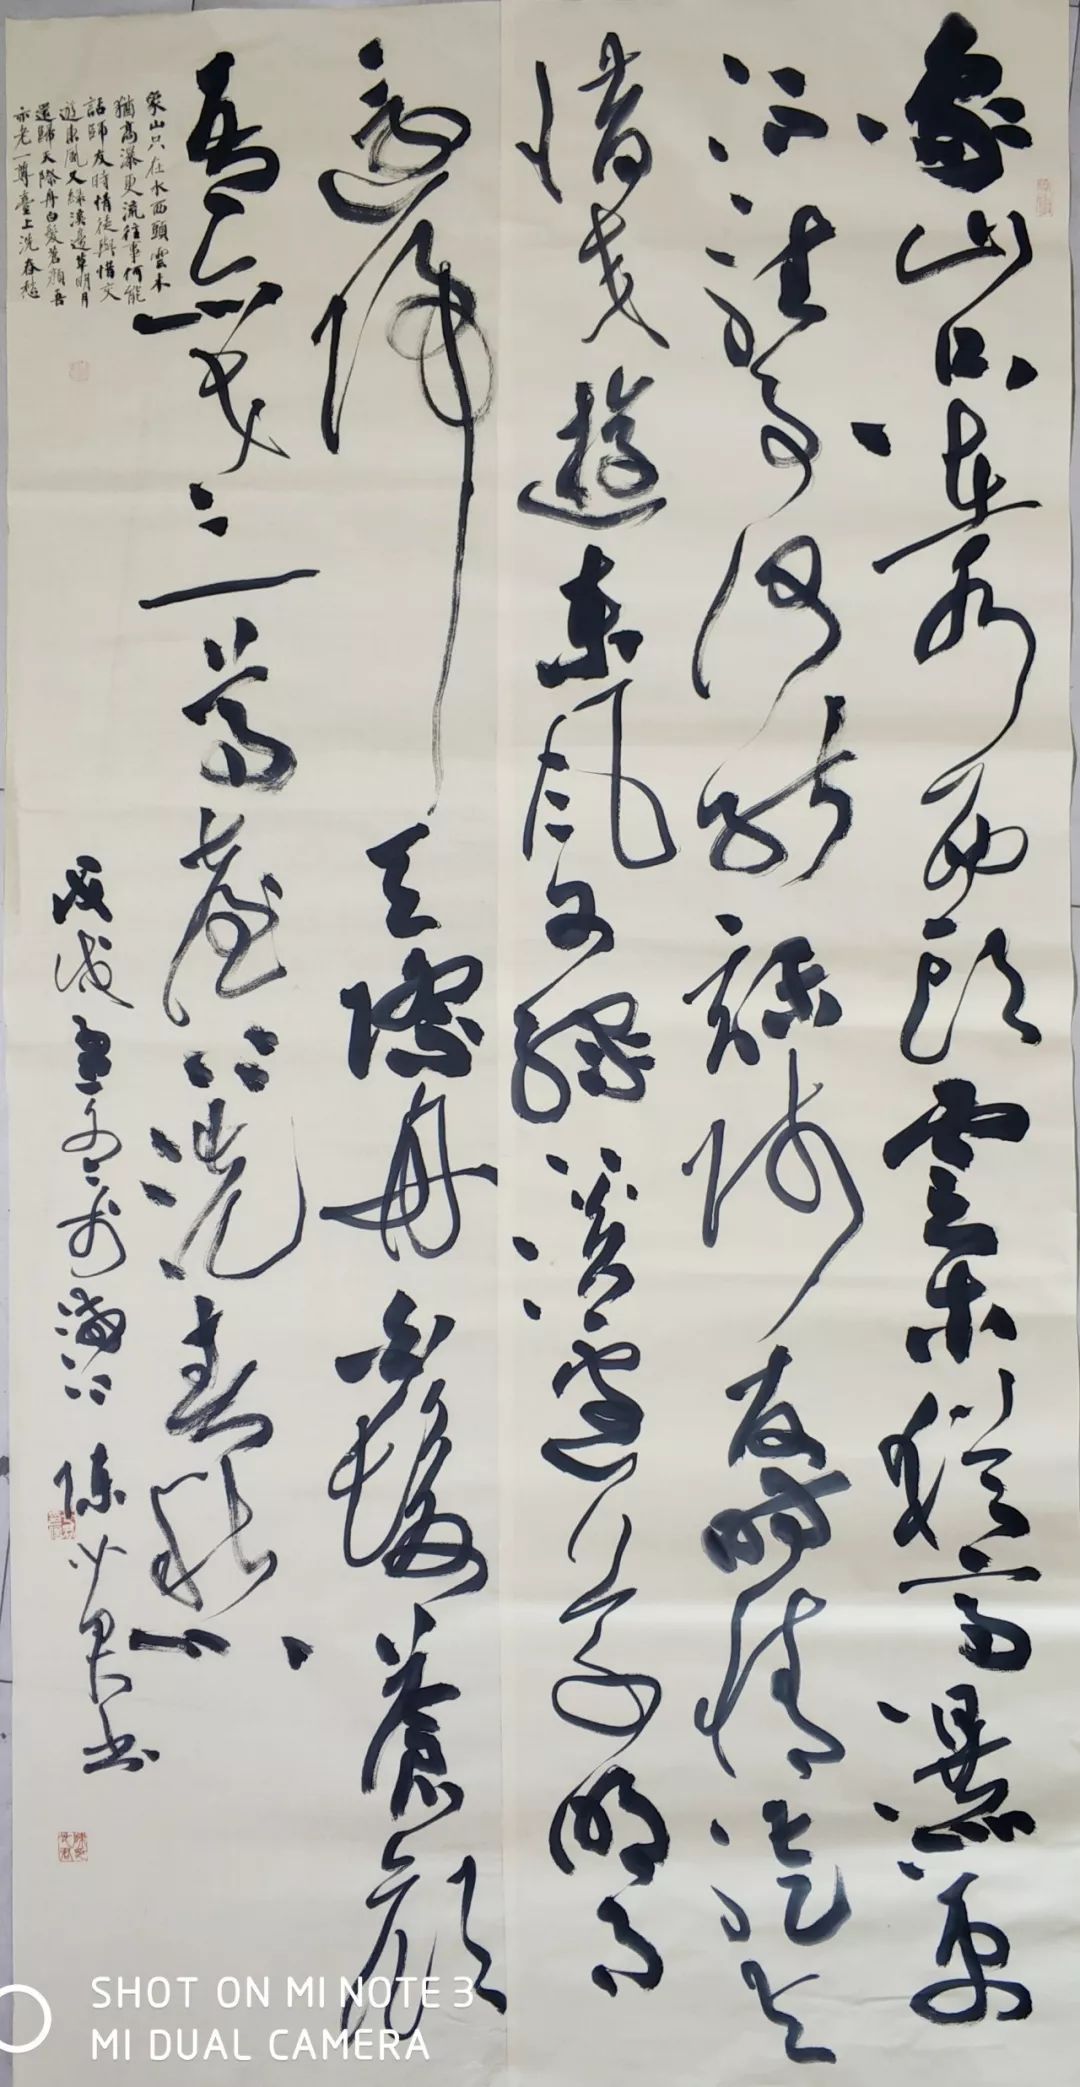 象山只在水西頭雲木猶高瀑更
流往事何能話師友時情徒與
惜交遊東風又綠溪邊草明月
還歸天際舟白髮蒼顏
吾亦老一尊臺上洗春愁
戊戌 陳 書
象山只在水西頭雲木
猶高瀑更流往事何能
話師友時情徒與惜交
遊東風又綠溪邊草明月
還歸天際舟白髮蒼顏吾
亦老一尊臺上洗春愁
SHOT ON MI NOTE 3
MI DUAL CAMERA